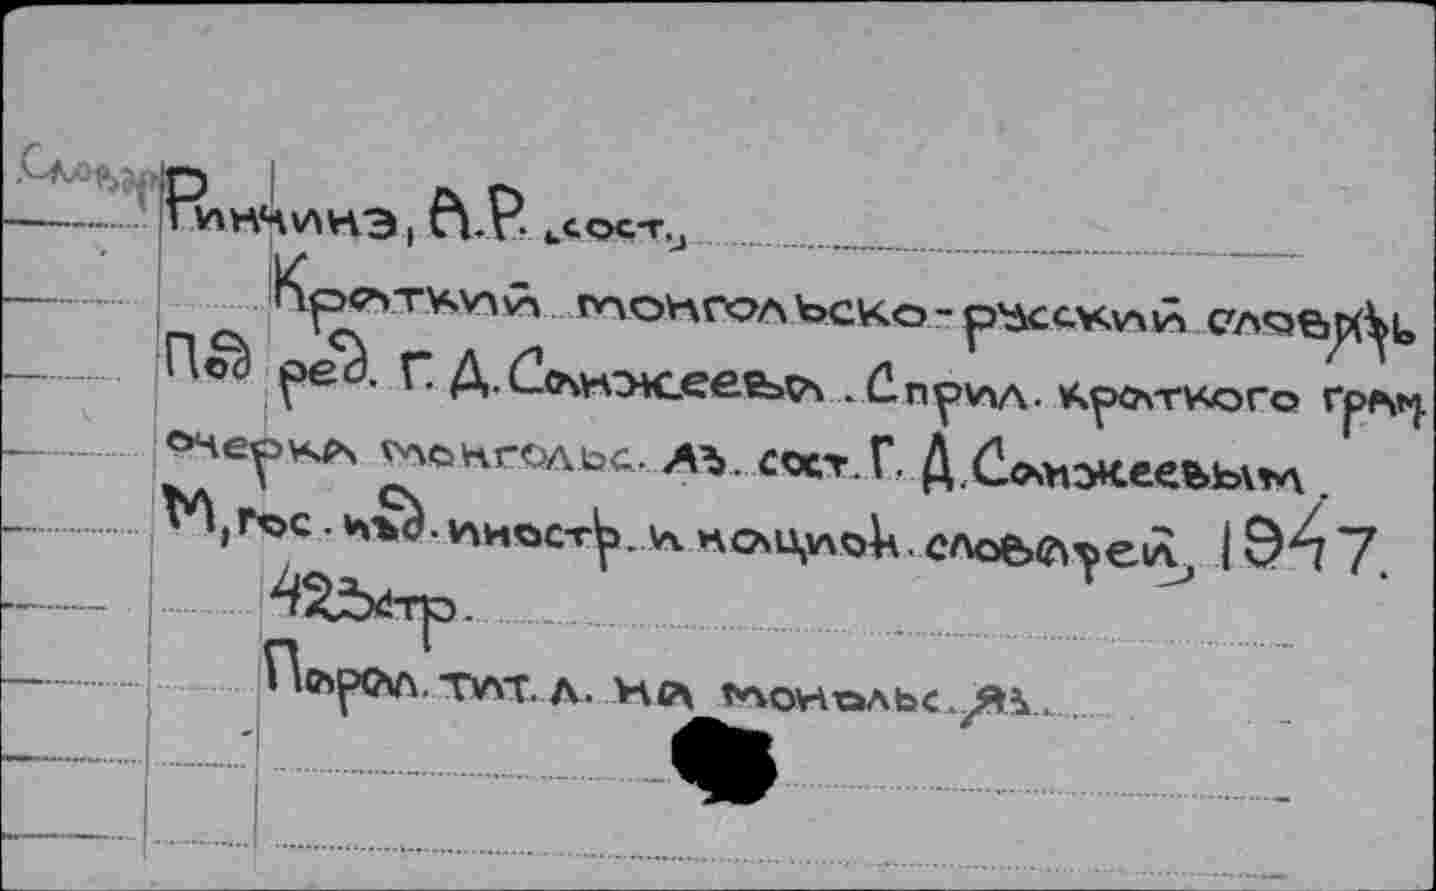 Словарь
Ринчинэ, А.Р. [сост.]
Краткий монгольско-русский словарь
Под ред. Г.Д.Санжеева. С прил. краткого грам.
очерка монгольс. яз. сост. Г.Д.Санжеевым.
М, гос. изд. иностр. и национ. словарей, 1947.
423стр.
Парал. тит. л. на монольс. яз.